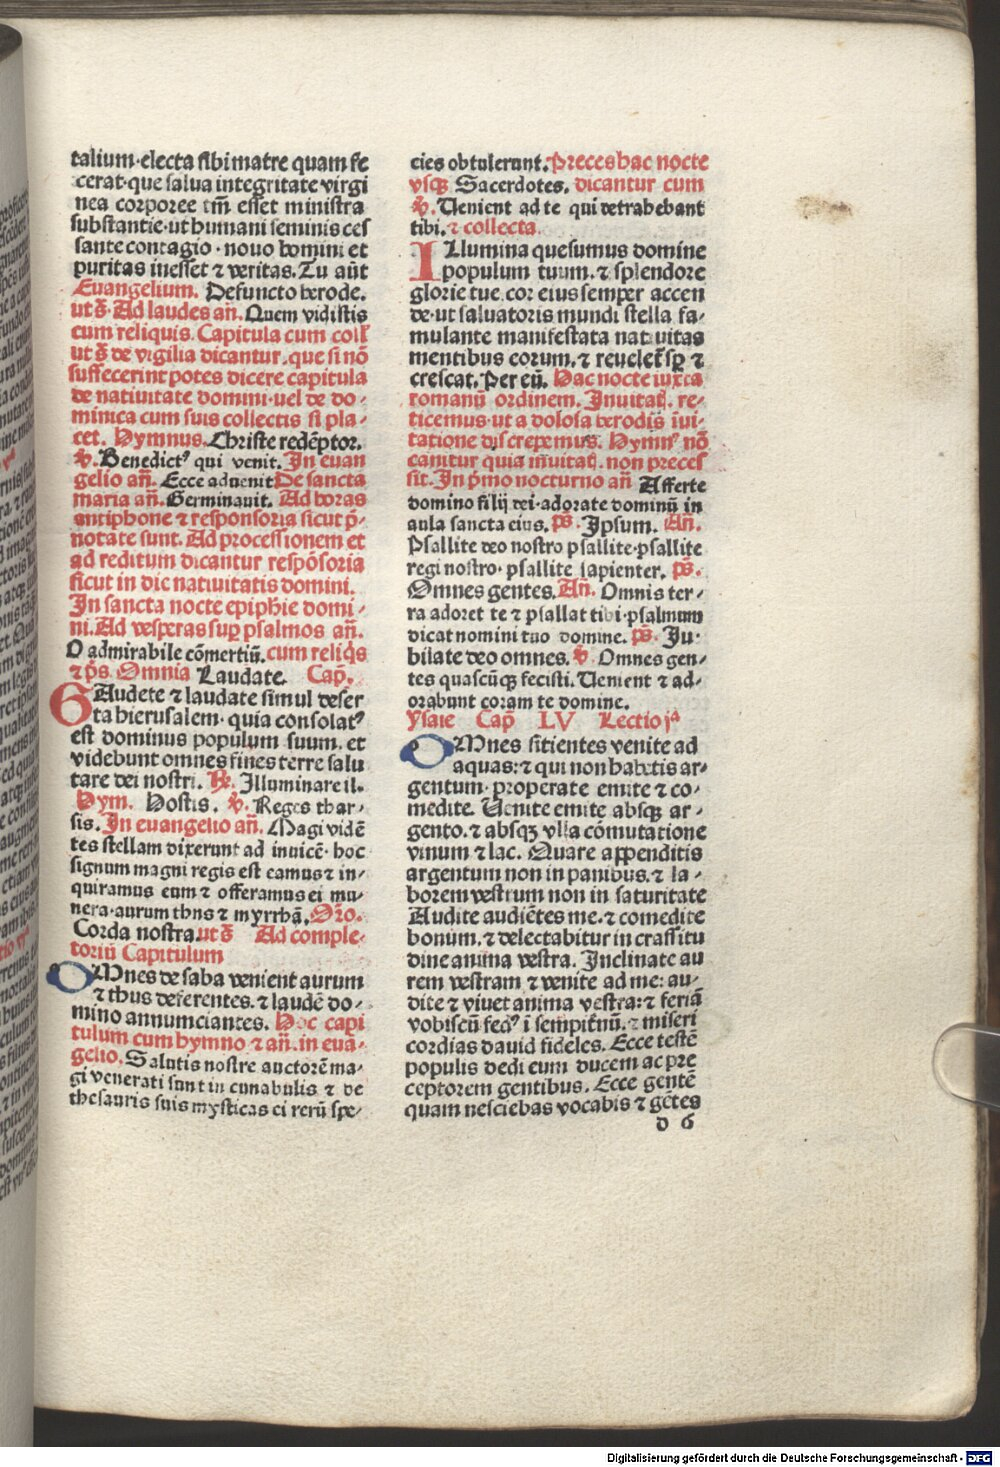 talium·electa sibi matre quam fe
cerat·que salua integritate virgi
nea corporee tm̃ esset ministra
substantie·ut humani seminis ces
sante contagio·nouo homini et
puritas inesset ⁊ veritas. Tu aūt
Euangelium. Defuncto herode.
ut s̄. Ad laudes añ. Quem vidistis
cum reliquis. Capitula cum coll̄
ut s̄ de vigilia dicantur. que si nō
suffecerint potes dicere capitula
de natiuitate domini·uel de do-
minica cum suis collectis si pla-
cet. Hymnus. Christe redēptor.
ꝟ. Benedictꝰ qui venit. In euan
gelio añ. Ecce aduenit De sancta
maria añ. Germinauit. Ad horas
antiphone ⁊ responsoria sicut p̄-
notate sunt. Ad processionem et
ad reditum dicantur respōsoria
sicut in die natiuitatis domini.
In sancta nocte epiphie domi-
ni. Ad vesperas suꝑ psalmos añ.
O admirabile cōmertiū. cum reliq̄s
⁊ p̄s. Omnia Laudate. Cap̄.
GAudete ⁊ laudate simul deser
ta hierusalem· quia consolatꝰ
est dominus populum suum. et
videbunt omnes fines terre salu
tare dei nostri. ℟. Illuminare il.
Hym. Hostis. ꝟ. Reges thar-
sis. In euangelio añ. Magi vidē
tes stellam dixerunt ad inuicē· hoc
signum magni regis est eamus ⁊ in-
quiramus eum ⁊ offeramus ei mu-
nera·aurum thus ⁊ myrrhā. Oro.
Corda nostra. ut s̄ Ad comple-
toriū Capitulum
OMnes de saba venient aurum
⁊ thus deferentes. ⁊ laudē do-
mino annunciantes. Hoc capi
tulum cum hymno ⁊ añ. in euā-
gelio. Salutis nostre auctorē ma-
gi venerati sunt in cunabulis ⁊ de
thesauris suis mysticas ei rerū spe-
cies obtulerunt. Preces hac nocte
vsqꝫ Sacerdotes. dicantur cum
ꝟ. Uenient ad te qui detrahebant
tibi. ⁊ collecta.
ILlumina quesumus domine
populum tuum. ⁊ splendore
glorie tue. cor eius semper accen
de·ut saluatoris mundi stella fa-
mulante manifestata natiuitas
mentibus eorum. ⁊ reueleť sꝑ ⁊
crescat. Per eū. Hac nocte iuxta
romanū ordinem. Inuitať. re-
ticemus·ut a dolosa herodis ĩui-
tatione discrepemus. Hymnꝰ nō
canitur quia inuitať. non preces
sit. In p̄mo nocturno añ Afferte
domino filij dei·adorate dominū in
aula sancta eius. p̄s. Ipsum. Añ.
Psallite deo nostro psallite·psallite
regi nostro· psallite sapienter. p̄s.
Omnes gentes. Añ. Omnis ter-
ra adoret te ⁊ psallat tibi·psalmum
dicat nomini tuo domine. p̄s. Ju-
bilate deo omnes. ꝟ. Omnes gen-
tes quascūqꝫ fecisti. Uenient ⁊ ad-
orabunt coram te domine.
Ysaie Cap̄ LV Lectio jᵃ
OMnes sitientes venite ad
aquas: ⁊ qui non habetis ar-
gentum· properate emite ⁊ co-
medite. Uenite emite absqꝫ ar-
gento. ⁊ absqꝫ vlla cōmutatione
vinum ⁊ lac. Quare appenditis
argentum non in panibus. ⁊ la-
borem vestrum non in saturitate
Audite audiētes me. ⁊ comedite
bonum. ⁊ delectabitur in crassitu
dine anima vestra. Inclinate au
rem vestram ⁊ venite ad me: au-
dite ⁊ viuet anima vestra: ⁊ feriā
vobiscū fedꝰ ĩ sempiťnū. ⁊ miseri
cordias dauid fideles. Ecce testē
populis dedi eum ducem ac pre
ceptorem gentibus. Ecce gentē
quam nesciebas vocabis ⁊ gētes
d 6
Digitalisierung gefördert durch die Deutsche Forschungsgemeinschaft - DFG